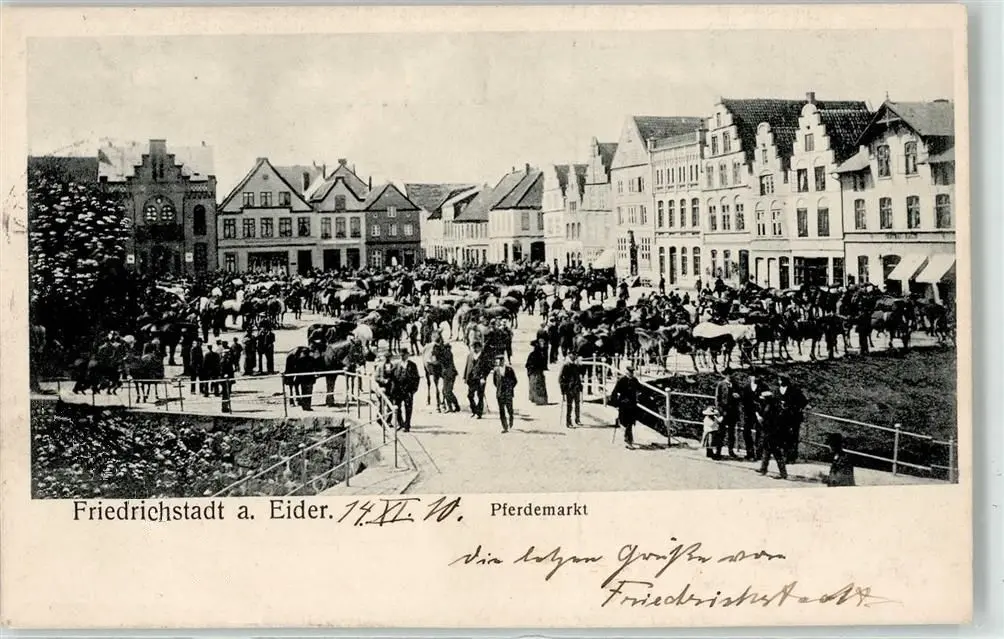 Friedrichstadt a. Eider. 14.XI.10. Pferdemarkt
Die letzen Grüße von
Friedrichstadt